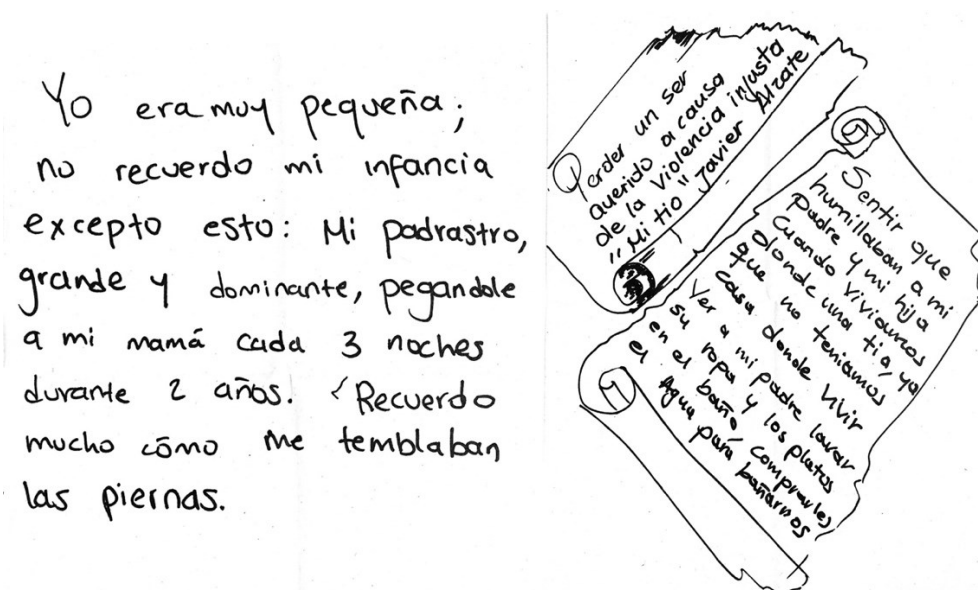 Yo era muy pequeña;
no recuerdo mi infancia
excepto esto: Mi padrastro,
grande y dominante, pegandole
a mi mamá cada 3 noches
durante 2 años. Recuerdo
mucho cómo me temblaban
las piernas.
Perder un ser
querido a causa
de la violencia injusta
"Mi tio" Javier Alzate
Sentir que
humillaban a mi
padre y mi hija
Cuando viviamos
donde una tia, ya
que no teniamos
casa donde vivir
Ver a mi padre lavar
su ropa y los platos
en el baño, comprarles
el Agua para bañarnos